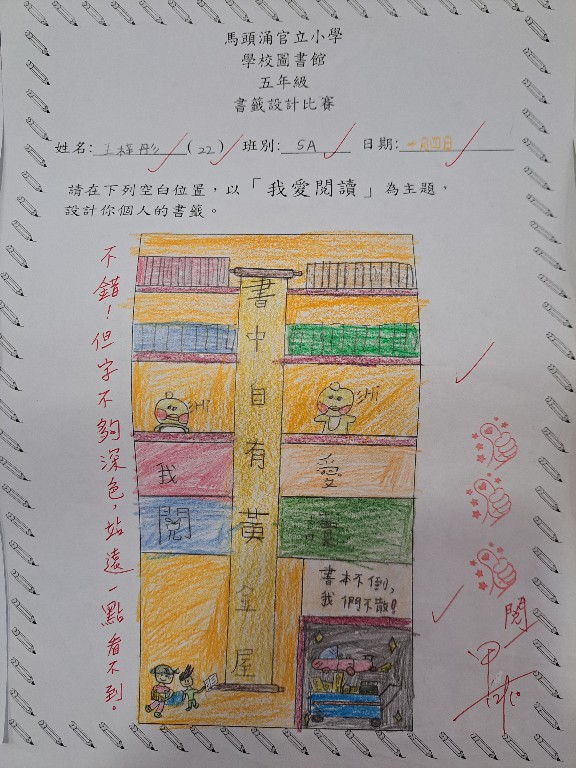 馬頭涌官立小學
學校圖書館
五年級
書籤設計比賽
姓名: 王梓彤 (22) 班別: 5A 日期: 十月四日
請在下列空白位置，以「我愛閱讀」為主題，
設計你個人的書籤。
不錯！但字不夠深色，站遠一點看不到。
書中自有黃金屋
Hi
Hi
我 愛
閱 讀
書本不倒，
我們不散！
閱
12/10